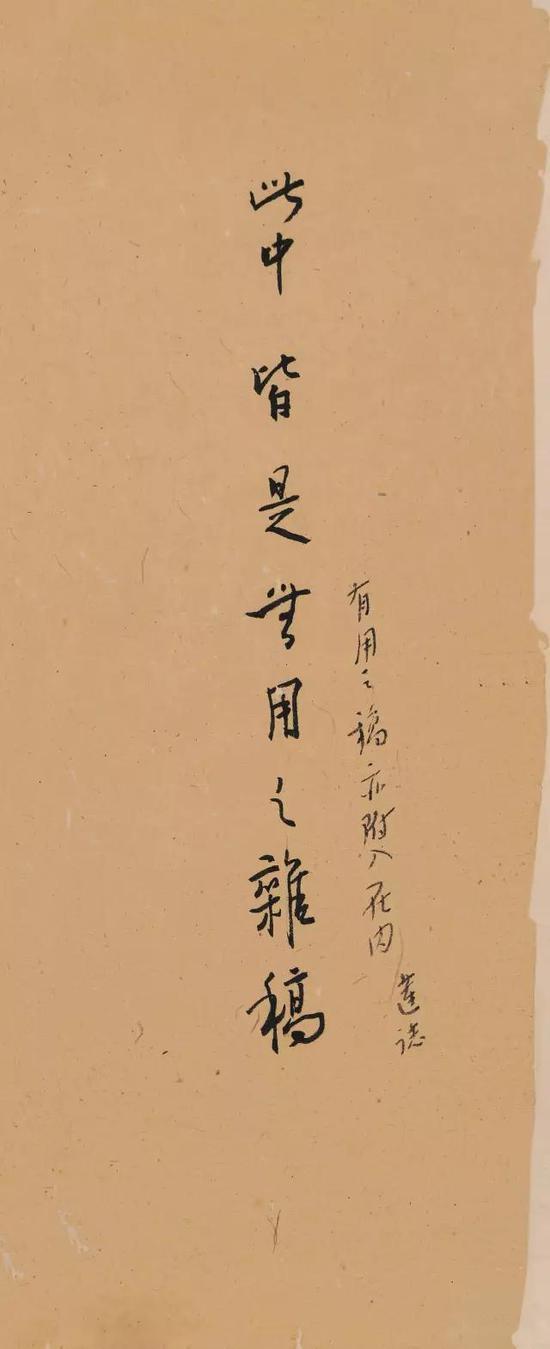 此中皆是無用之雜稿
有用之稿亦附入在内
蓮誌